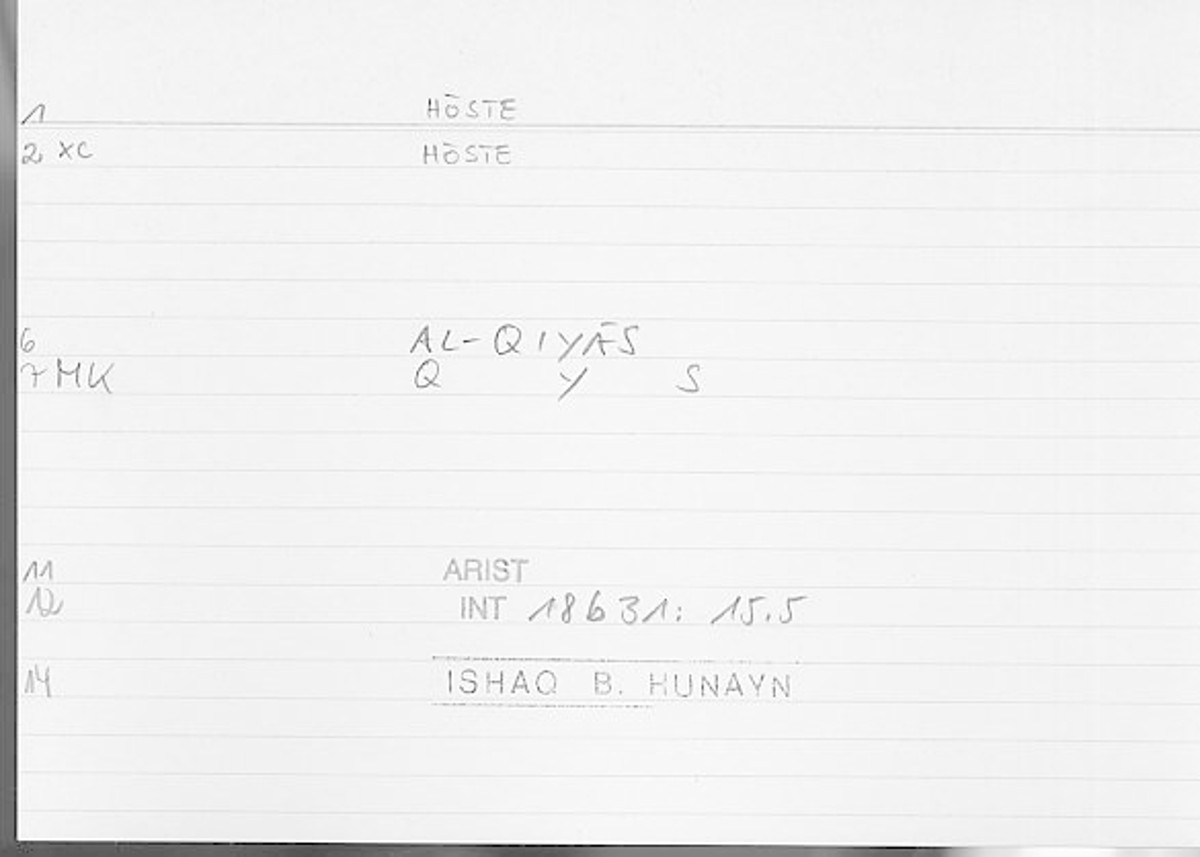 1 HŌSTE
2 XC HŌSTE
6 AL-QIYĀS
7 MK Q Y S
11 ARIST
12 INT 18631: 15.5
14 ISHAQ B. HUNAYN